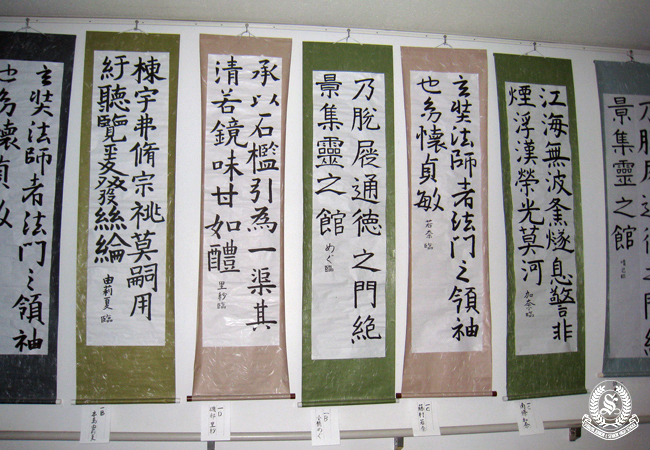 乃脱屣通徳之門絶
景集靈之館
江海無波烽燧息警非
煙浮漢榮光莫河
加奈臨
玄奘法師者法門之領袖
也幼懐貞敏
若奈臨
乃脱屣通徳之門絶
景集靈之館
めぐ臨
承以石檻引為一渠其
清若鏡味甘如醴
里紗臨
棟宇弗脩宗祧莫嗣用
紆聽覽爰發絲綸
由莉夏臨
玄奘法師者法門之領袖
也幼懐貞敏
一C
一B
めぐ
一D
里紗
一B
S